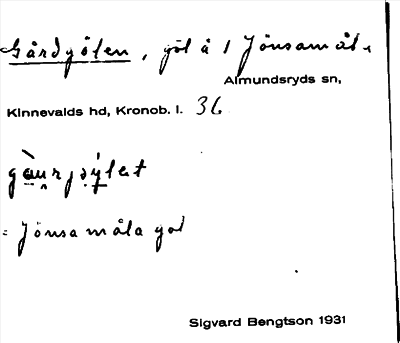 Gårdgölen, göl å 1 Jönsamåla
Almundsryds sn,
Kinnevalds hd, Kronob. l. 36
= Jönsamåla göl
Sigvard Bengtson 1931